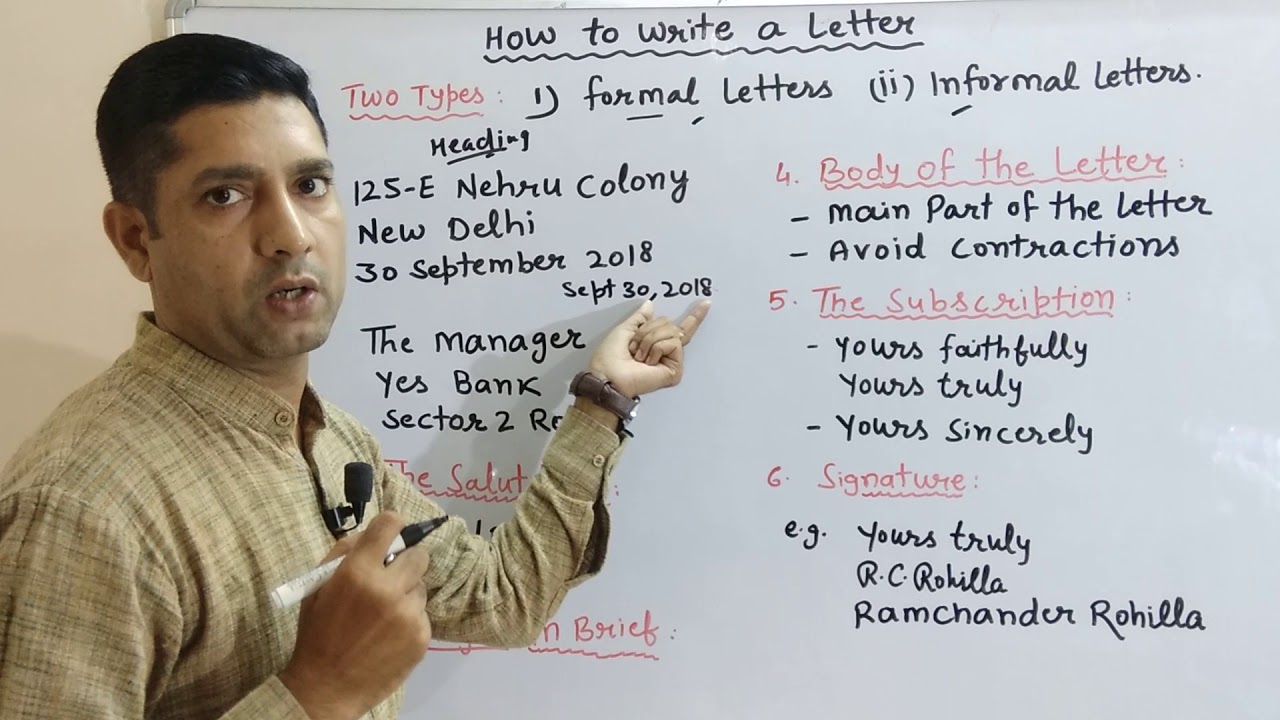 How to write a Letter
Two Types: 1) formal Letters (ii) Informal Letters.
Heading
125-E Nehru Colony
New Delhi
30 September 2018
Sept 30, 2018
The manager
Yes Bank
Sector 2
The
:
in Brief:
4. Body of the Letter:
- main Part of the letter
- Avoid Contractions
5. The Subscription:
- Yours faithfully
Yours truly
- Yours Sincerely
6. Signature:
e.g. Yours truly
R.C. Rohilla
Ramchander Rohilla